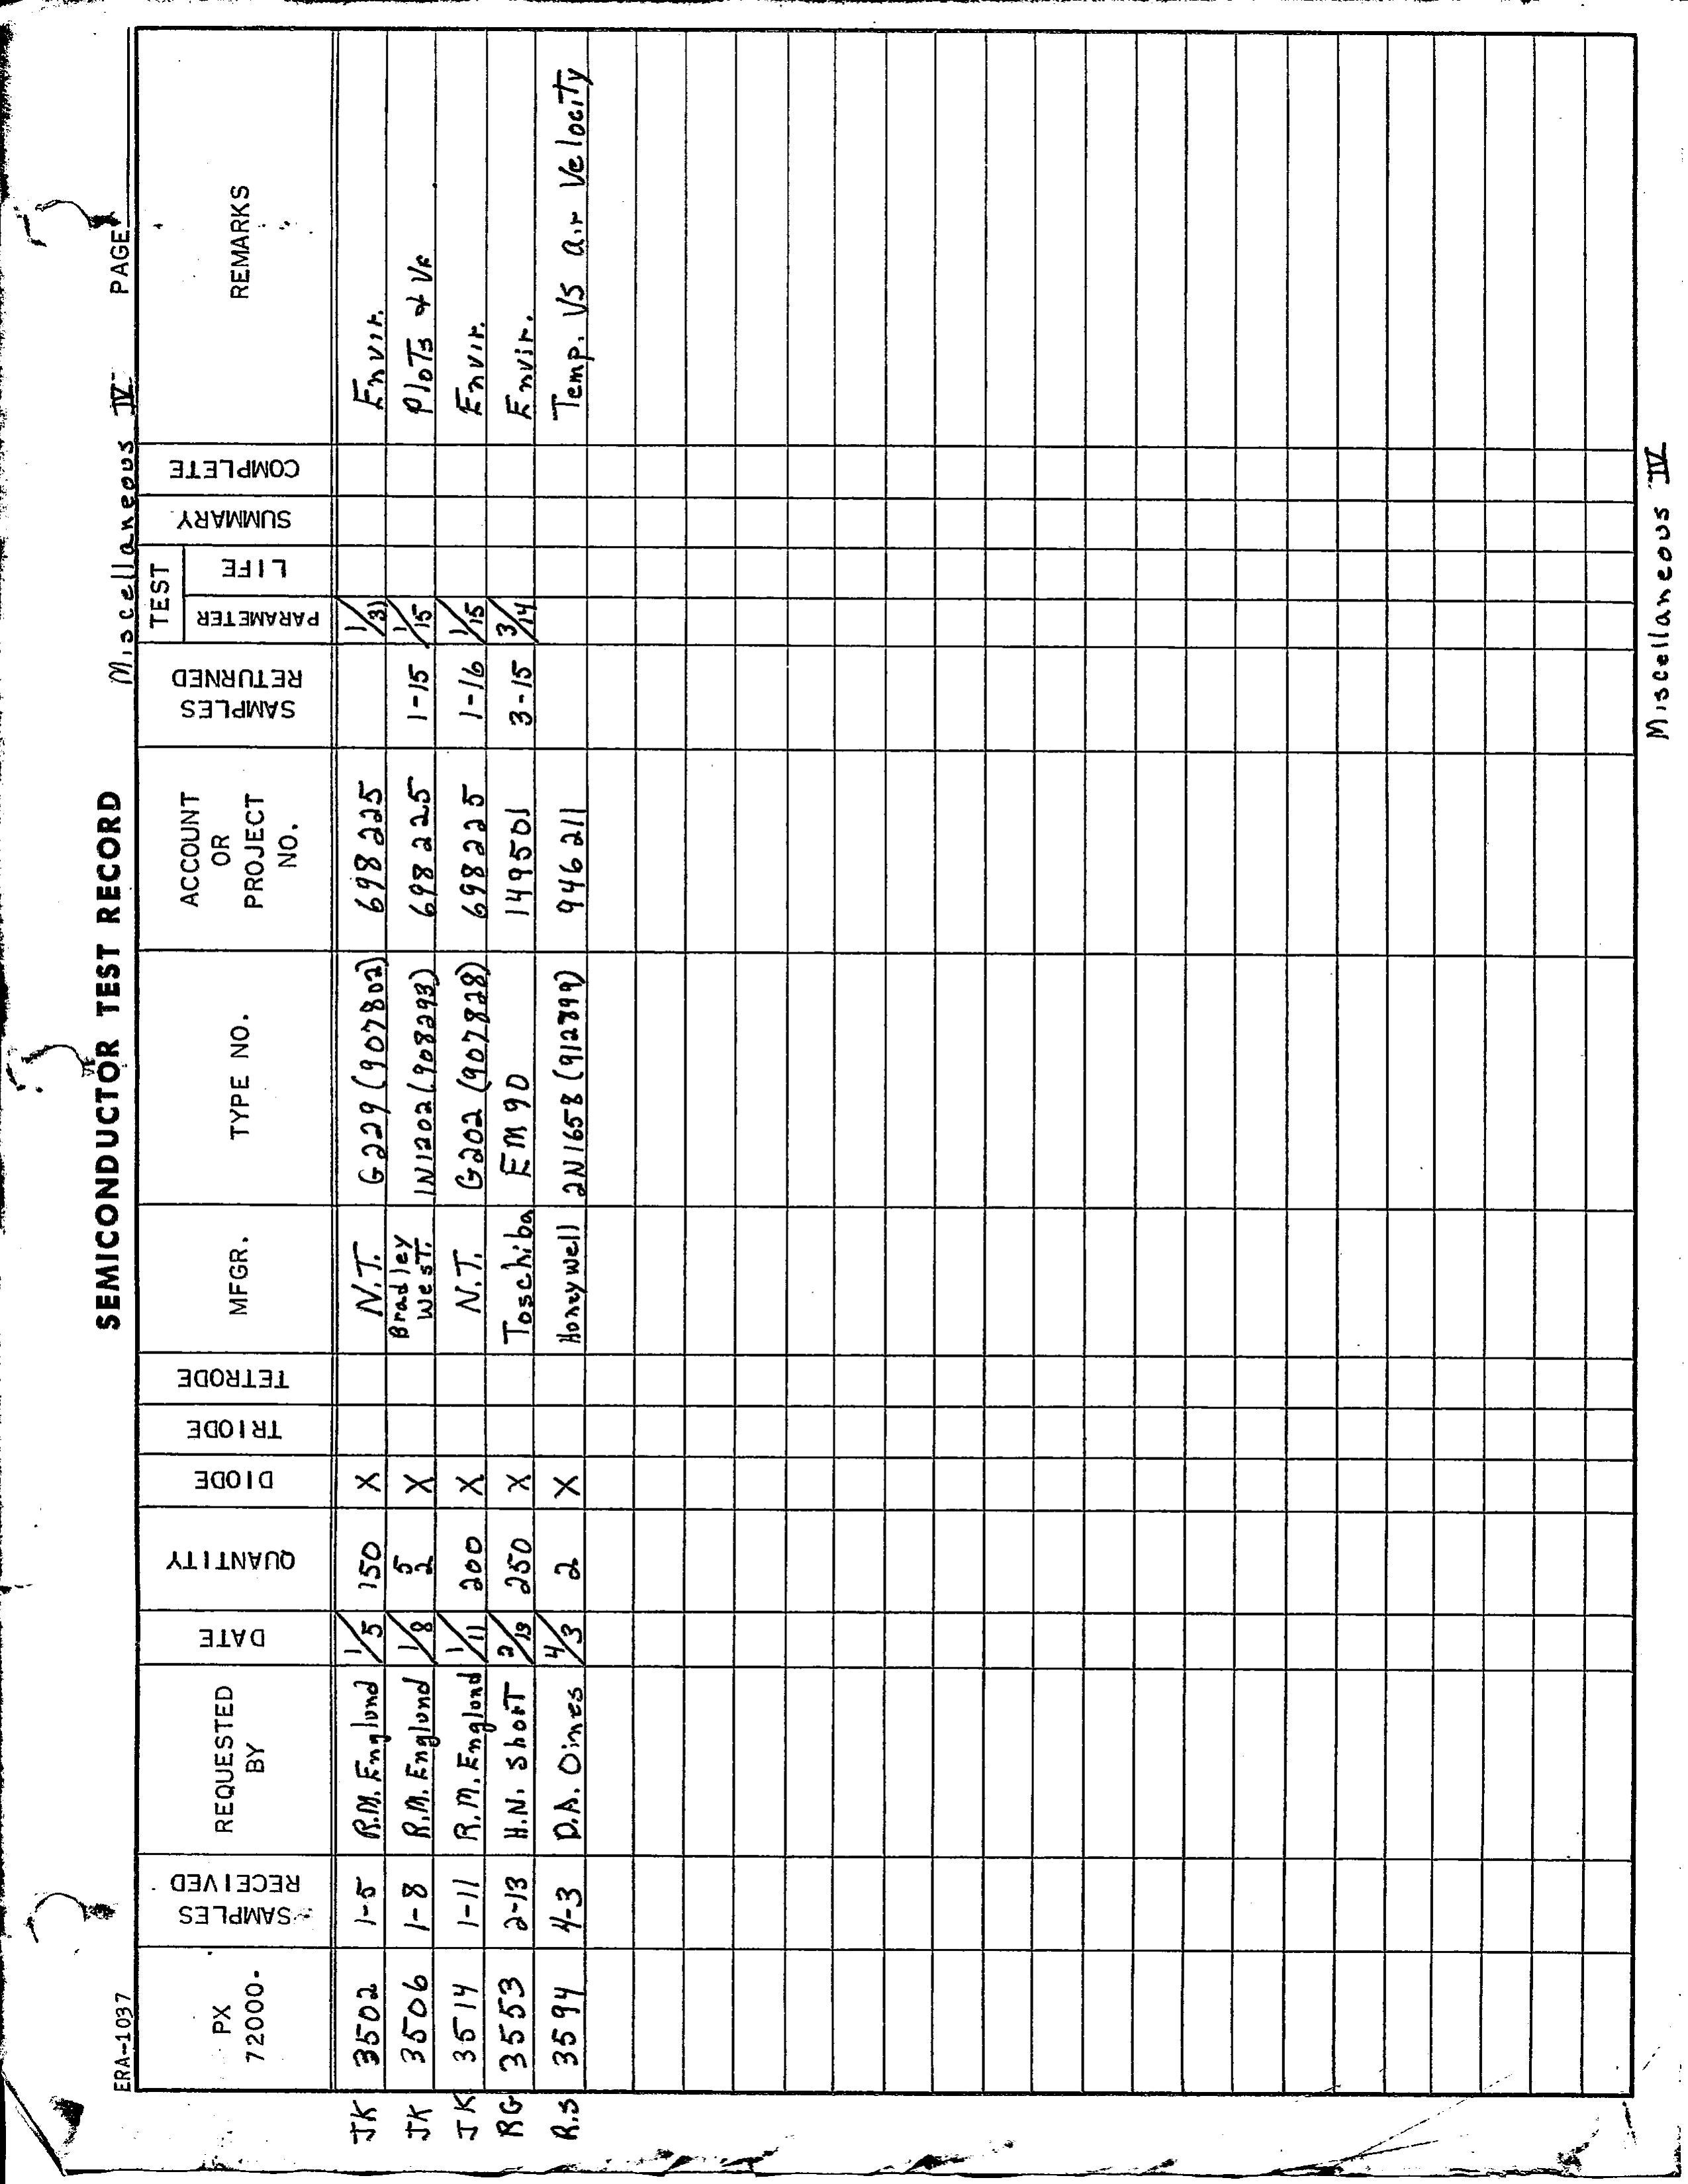 ERA-1037
SEMICONDUCTOR TEST RECORD
Miscellaneous IV
PAGE
PX 72000-
SAMPLES RECEIVED
REQUESTED BY
DATE
QUANTITY
DIODE
TRIODE
TETRODE
MFGR.
TYPE NO.
ACCOUNT OR PROJECT NO.
SAMPLES RETURNED
TEST
PARAMETER
LIFE
SUMMARY
COMPLETE
REMARKS
JK 3502 1-5 R.M. England 1/5 150 X N.T. G229 (907802) 698225 1/31 Envir.
JK 3506 1-8 R.M. England 1/8 5 2 X Bradley West. 1N1202 (908293) 698225 1-15 1/15 Plots & VF
JK 3514 1-11 R.M. England 1/11 200 X N.T. G202 (907828) 698225 1-16 1/15 Envir.
RG 3553 2-13 H.N. Short 2/13 250 X Toschiba EM 90 149501 3-15 3/14 Envir.
R.S 3594 4-3 D.A. Oines 4/3 2 X Honeywell 2N1658 (912899) 946211 Temp. VS air Velocity
Miscellaneous IV